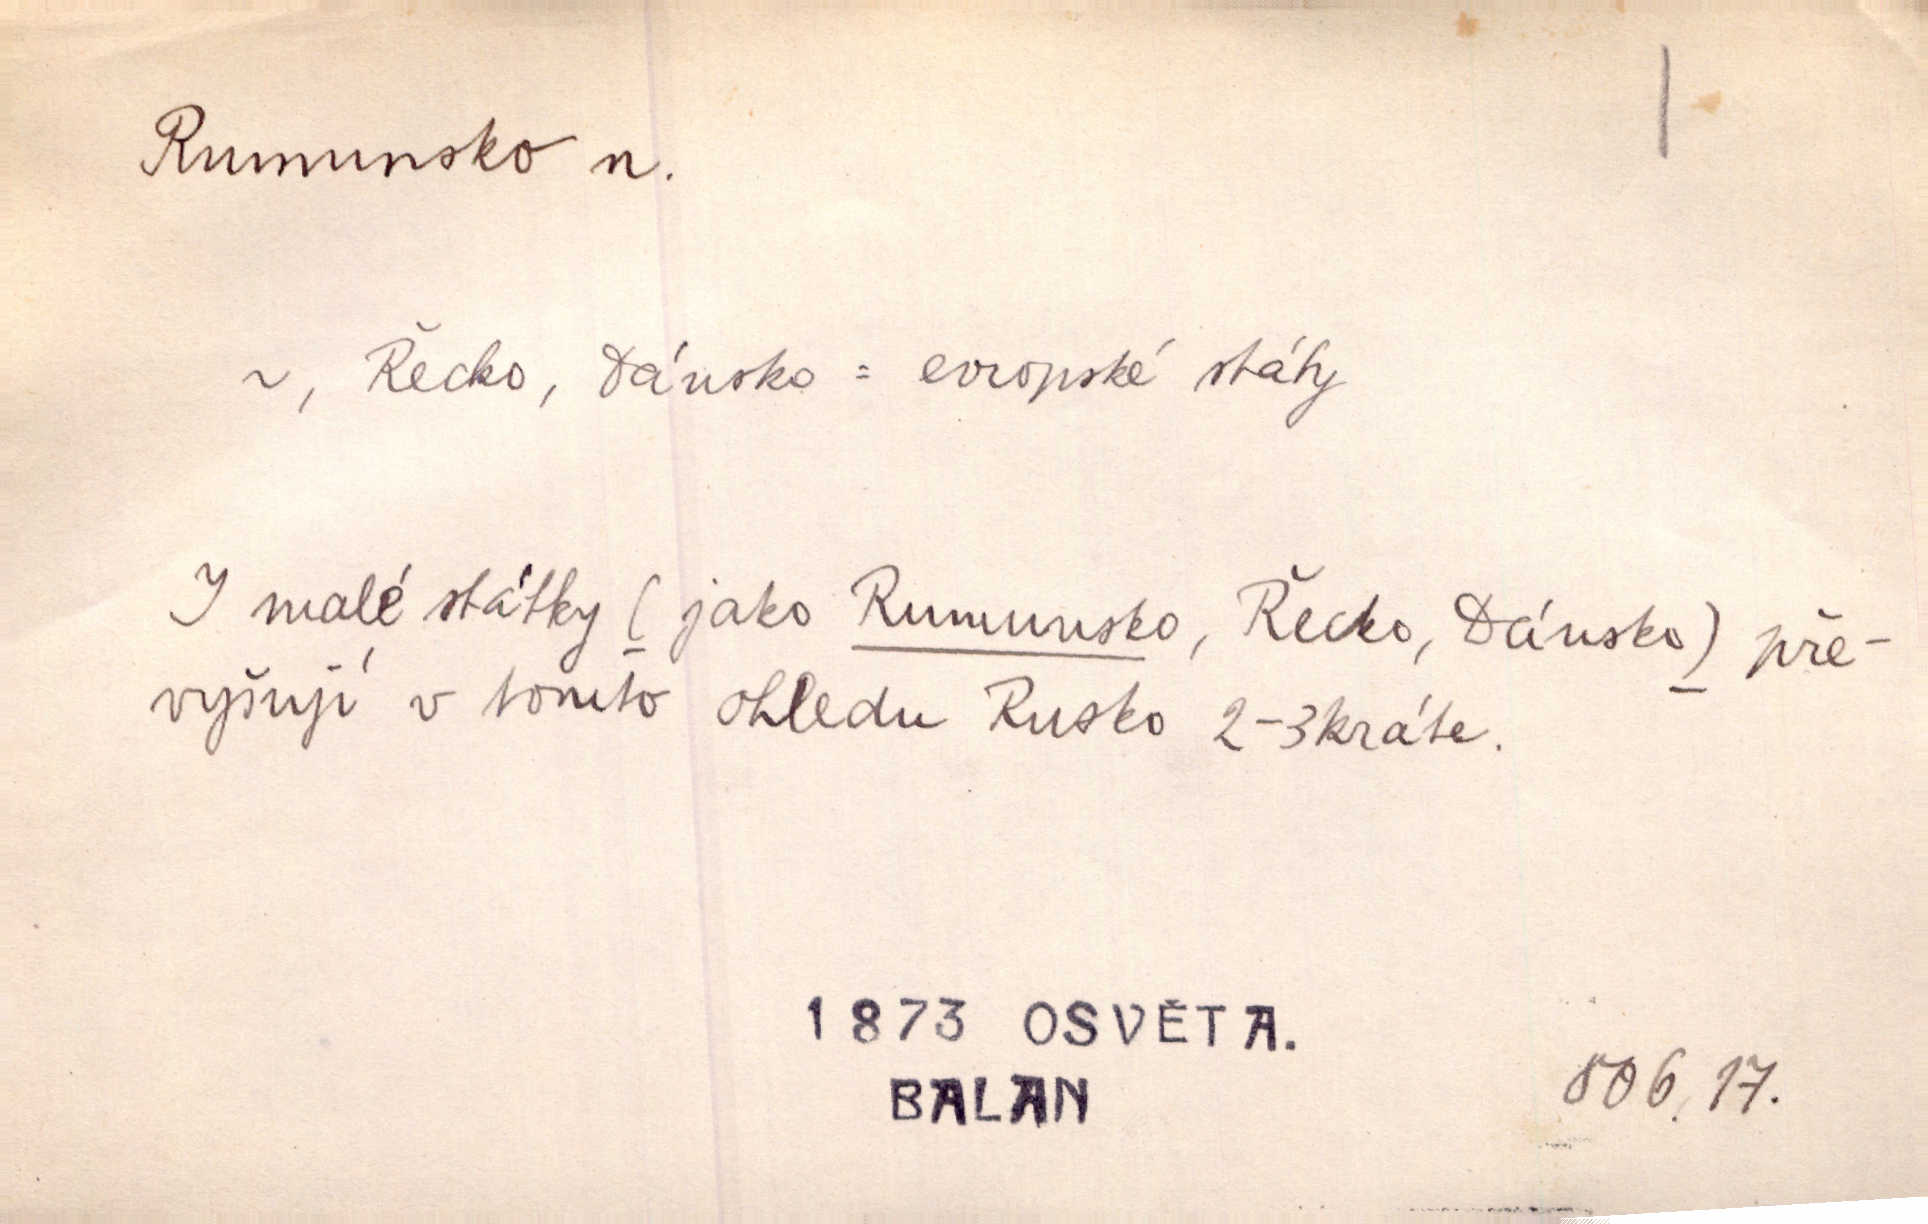 Rumunsko n.
~, Řecko, Dánsko = evropské státy
I malé státky (jako Rumunsko, Řecko, Dánsko) pře-
vyšují v tomto ohledu Rusko 2-3kráte.
1873 OSVĚTA.
BALAN
806, 17.